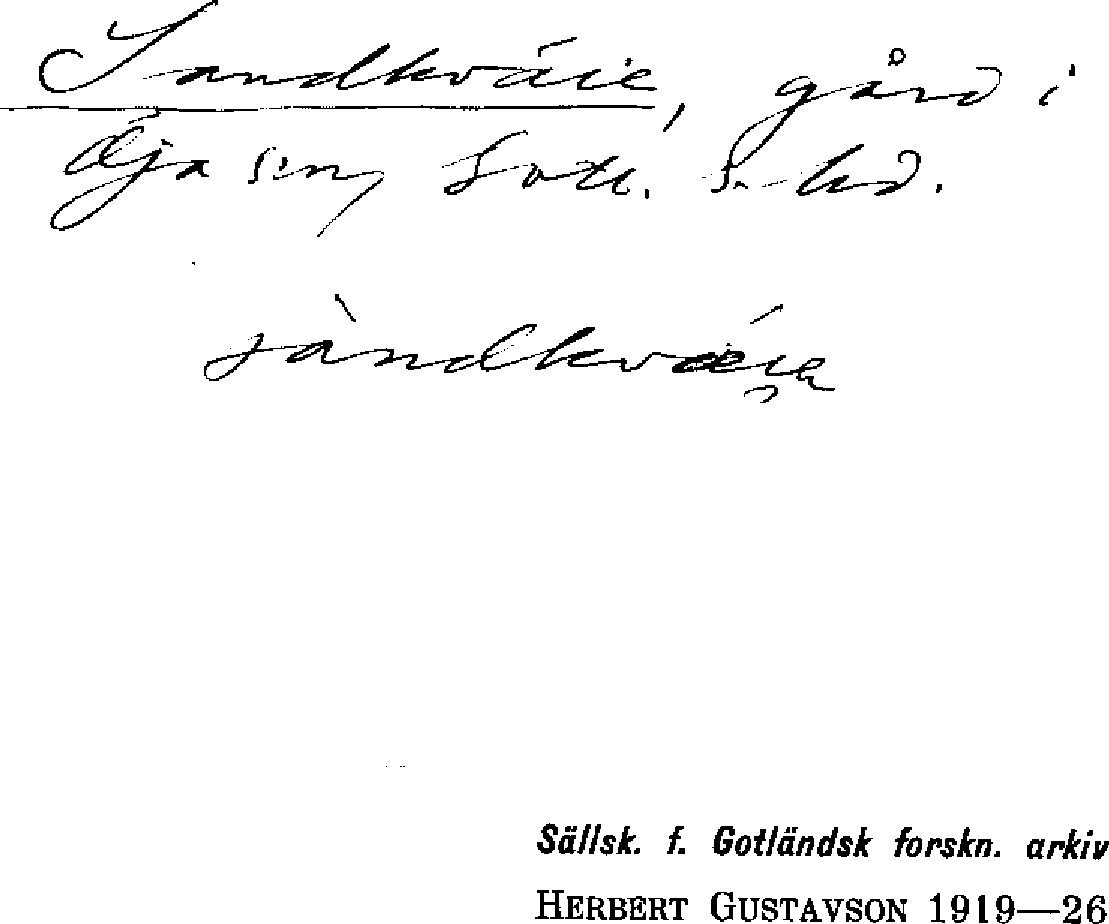 Sandkväie, gård i
Öja sn, Gotl. S. hd.
sàndkvǽi̯ɐ
Sällsk. f. Gotländsk forskn. arkiv
HERBERT GUSTAVSON 1919—26